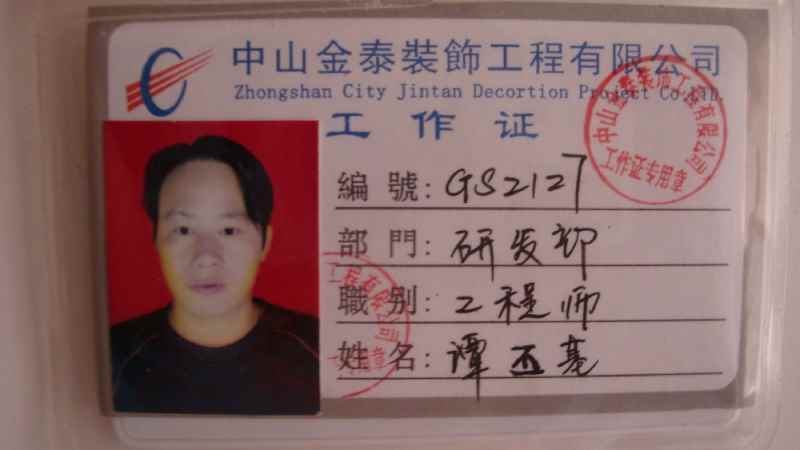 中山金泰裝飾工程有限公司
Zhongshan City Jintan Decortion Project Co.Ltd.
工作证
編號:GS2127
部門:研发部
職别:工程师
姓名:谭丕基
中山金泰裝飾工程有限公司
工作证专用章
工程有限公司
用章